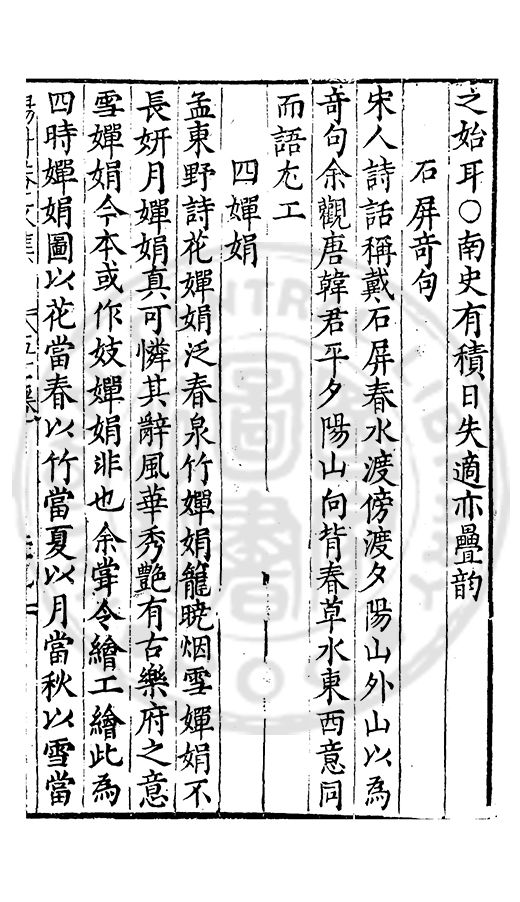 之始耳○南史有積日失適亦疊韵
石屏奇句
宋人詩話稱戴石屏春水渡傍渡夕陽山外山以為
奇句余觀唐韓君平夕陽山向背春草水東西意同
而語尤工
四嬋娟
孟東野詩花嬋娟泛春泉竹嬋娟籠曉烟雪嬋娟不
長妍月嬋娟真可憐其辭風華秀艷有古樂府之意
雪嬋娟今本或作妓嬋娟非也余嘗令繪工繪此為
四時嬋娟圖以花當春以竹當夏以月當秋以雪當